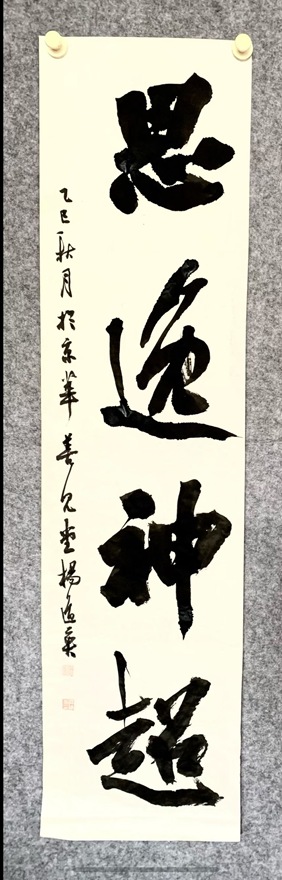 思逸神超
乙巳秋月於京華善兄堂楊逸英